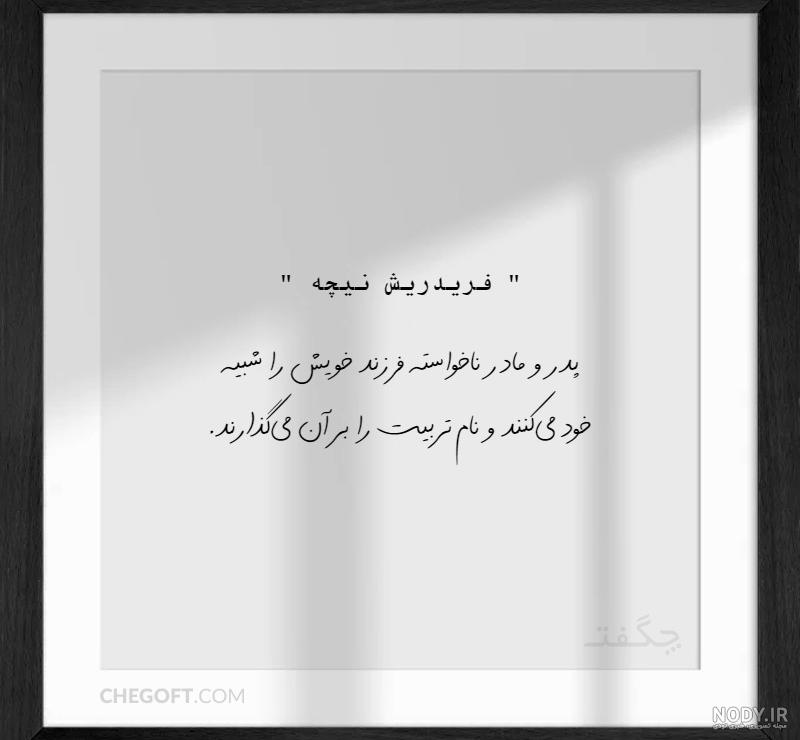 " فریدریش نیچه "
پدر و مادر ناخواسته فرزند خویش را شبیه
خود می‌کنند و نام تربیت را بر آن می‌گذارند.
چگفت
CHEGOFT.COM
NODY.IR